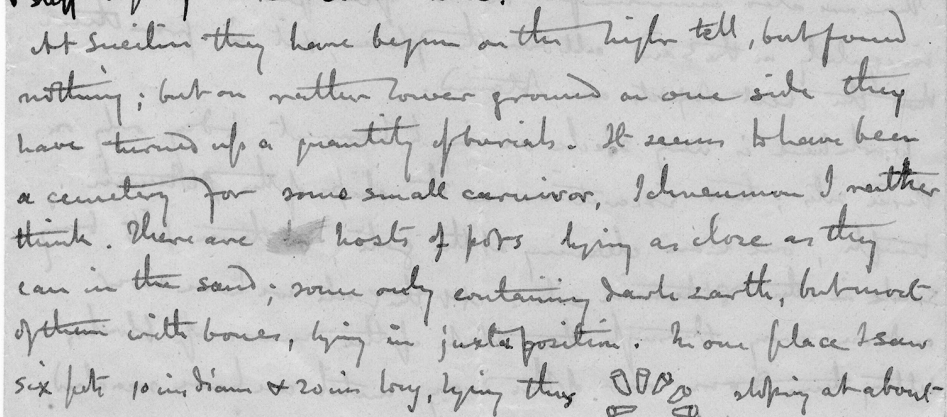 At Sueilin they have begun on the high tell, but found
nothing; but on rather lower ground on one side they
have turned up a quantity of burials. It seems to have been
a cemetery for some small carnivor, Ichneumon I rather
think. There are hosts of pots lying as close as they
can in the sand; some only containing dark earth, but most
of them with bones, lying in juxtaposition. In one place I saw
six pots 10 in diam & 20 ins long, lying thus sloping at about